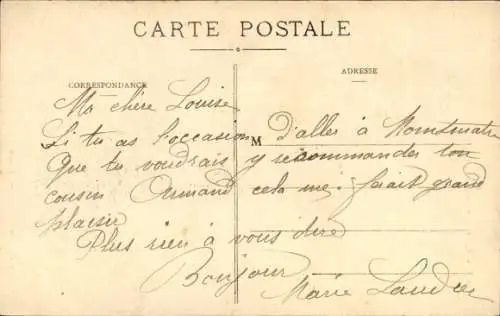 CARTE POSTALE
CORRESPONDANCE
ADRESSE
M
Ma chère Louise
Si tu as l'occasion d'aller à Montmatre
Que tu voudrais y recommander ton
cousin Armand cela me ferait grand
plaisir
Plus rien à vous dire
Bonjour
Marie